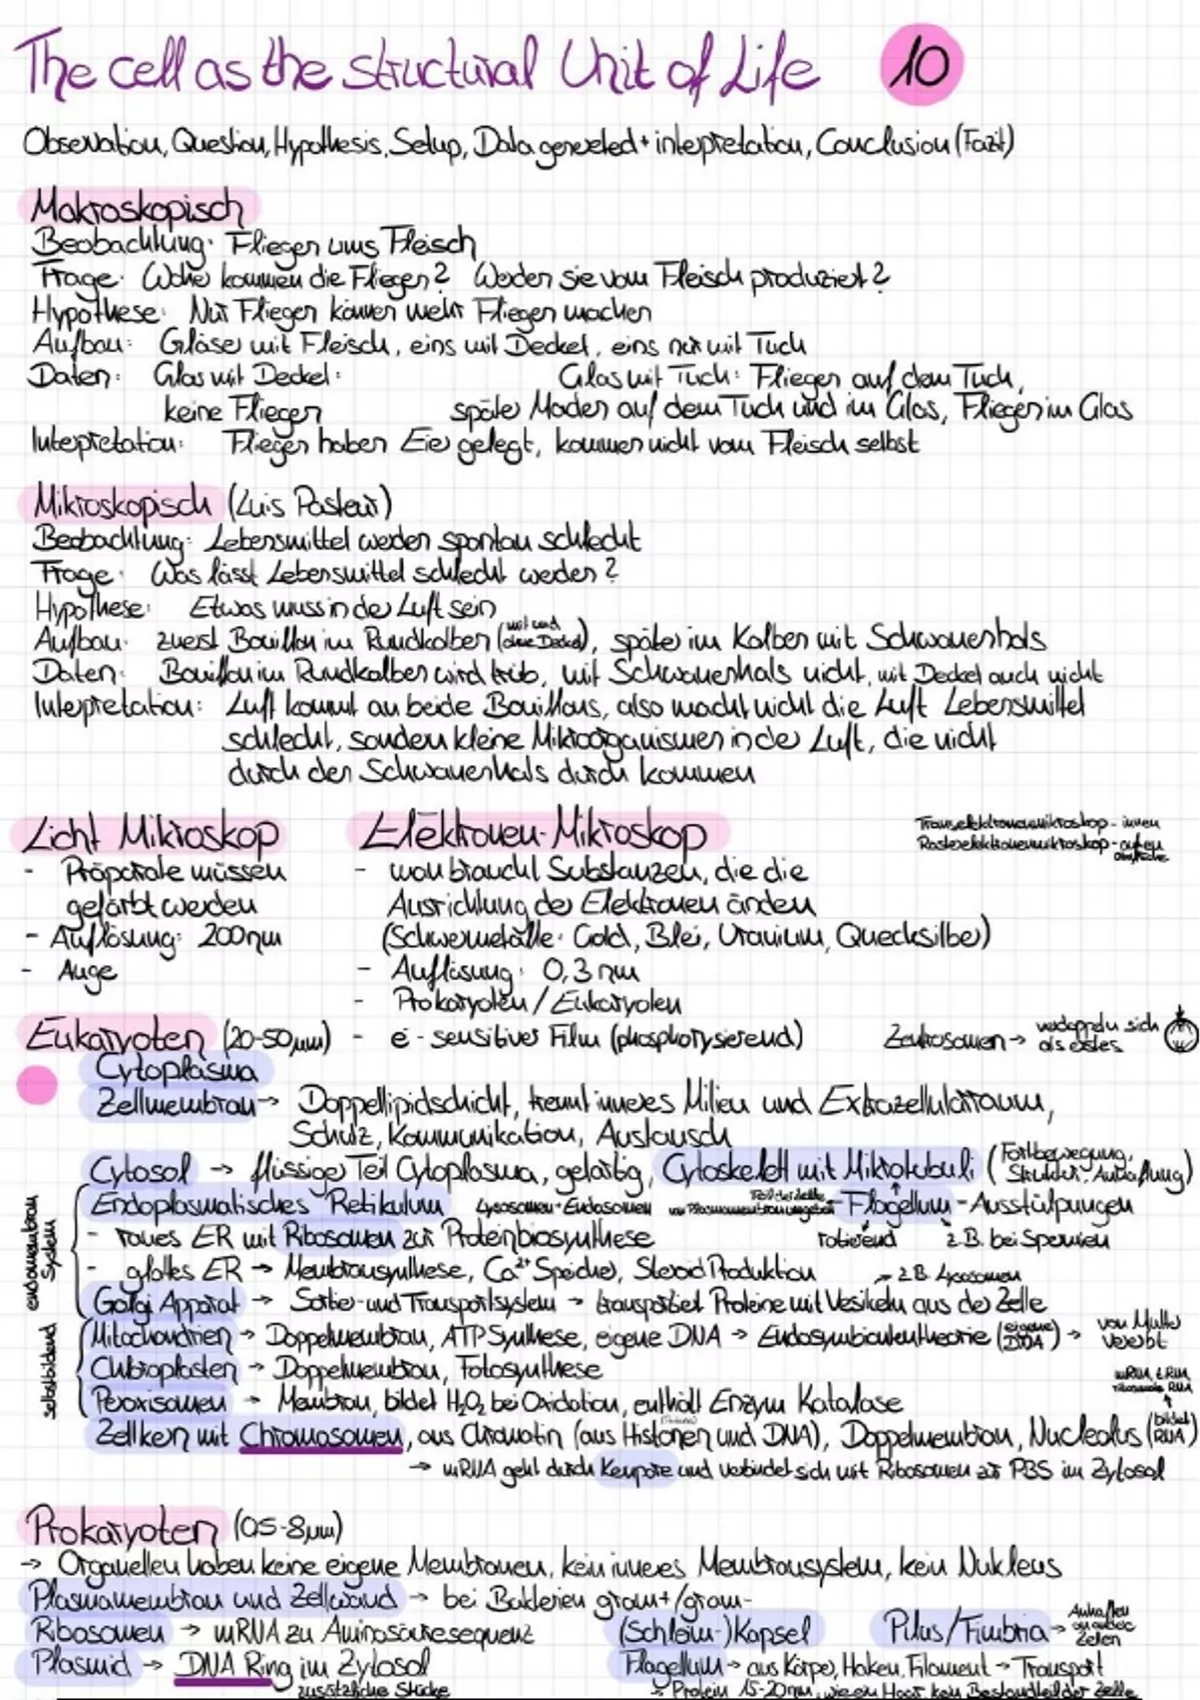 The cell as the structural Unit of Life 10
Observation, Question, Hypothesis, Setup, Data genereted + interpretation, Conclusion (Fazit)
Makroskopisch
Beobachtung: Fliegen ums Fleisch
Frage: Woher kommen die Fliegen? Werden sie vom Fleisch produziert?
Hypothese: Nur Fliegen können mehr Fliegen machen
Aufbau: Gläser mit Fleisch, eins mit Deckel, eins nur mit Tuch
Daten: Glas mit Deckel: Glas mit Tuch: Fliegen auf dem Tuch,
keine Fliegen später Maden auf dem Tuch und im Glas, Fliegen im Glas
Interpretation: Fliegen haben Eier gelegt, kommen nicht vom Fleisch selbst
Mikroskopisch (Luis Pasteur)
Beobachtung: Lebensmittel werden spontan schlecht
Frage: Was lässt Lebensmittel schlecht werden?
Hypothese: Etwas muss in der Luft sein
Aufbau: zuerst Bouillon im Rundkolben (mit und ohne Deckel), später im Kolben mit Schwanenhals
Daten: Bouillon im Rundkolben wird trüb, mit Schwanenhals nicht, mit Deckel auch nicht
Interpretation: Luft kommt an beide Bouillons, also macht nicht die Luft Lebensmittel
schlecht, sondern kleine Mikroorganismen in der Luft, die nicht
durch den Schwanenhals durch kommen
Licht Mikroskop Elektronen-Mikroskop
Transelektronenmikroskop - innen
Rasterelektronenmikroskop - außen
Oberfläche
- Präparate müssen - man braucht Substanzen, die die
gefärbt werden Ausrichtung der Elektronen änden
- Auflösung: 200nm (Schwermetalle: Gold, Blei, Uranium, Quecksilber)
- Auge - Auflösung: 0,3 nm
- Prokaryoten / Eukaryoten
Eukaryoten (20-50µm) - e⁻-sensitiver Film (phosphorysierend) Zentrosomen → verdoppeln sich
als erstes
Cytoplasma
Zellmembran → Doppellipidschicht, trennt inneres Milieu und Extrazellulärraum,
Schutz, Kommunikation, Austausch
Cytosol → flüssiger Teil Cytoplasma, gelartig, Cytoskelett mit Mikrotubuli (Fortbewegung,
Struktur, Aufhaftung)
endomembran System
Endoplasmatisches Retikulum Lysosomen + Endosomen von Plasmamembran umgeben - Flagellum - Ausstülpungen
- raues ER mit Ribosomen zur Proteinbiosynthese rotierend z.B. bei Spermien
- glattes ER → Membransynthese, Ca²⁺ Speicher, Steroid Produktion → z.B. Lysosomen
Golgi Apparat → Sortier- und Transportsystem → transportiert Proteine mit Vesikeln aus der Zelle
selbstbildend
Mitochondrien → Doppelmembran, ATP Synthese, eigene DNA → Endosymbiontentheorie (eigene DNA) → von Mutter
vererbt
Chloroplasten → Doppelmembran, Fotosynthese
Peroxisomen → Membran, bildet H₂O₂ bei Oxidation, enthält Enzym Katalase
Zellkern mit Chromosomen, aus Chromatin (aus Histonen und DNA), Doppelmembran, Nucleolus (bildet RNA)
→ mRNA geht durch Kernpore und verbindet sich mit Ribosomen zur PBS im Zytosol
Prokaryoten (0,5-8µm)
→ Organellen haben keine eigene Membranen, kein inneres Membransystem, kein Nukleus
Plasmamembran und Zellwand → bei Bakterien gram+/gram-
Ribosomen → mRNA zu Aminosäuresequenz (Schleim-)Kapsel Pilus/Fimbria → Anhaften
an andere
Zellen
Plasmid → DNA Ring im Zytosol Flagellum → aus Körper, Haken, Filament → Transport
zusätzliche Stücke → Protein 15-20nm, wie ein Haar, kein Bestandteil der Zelle